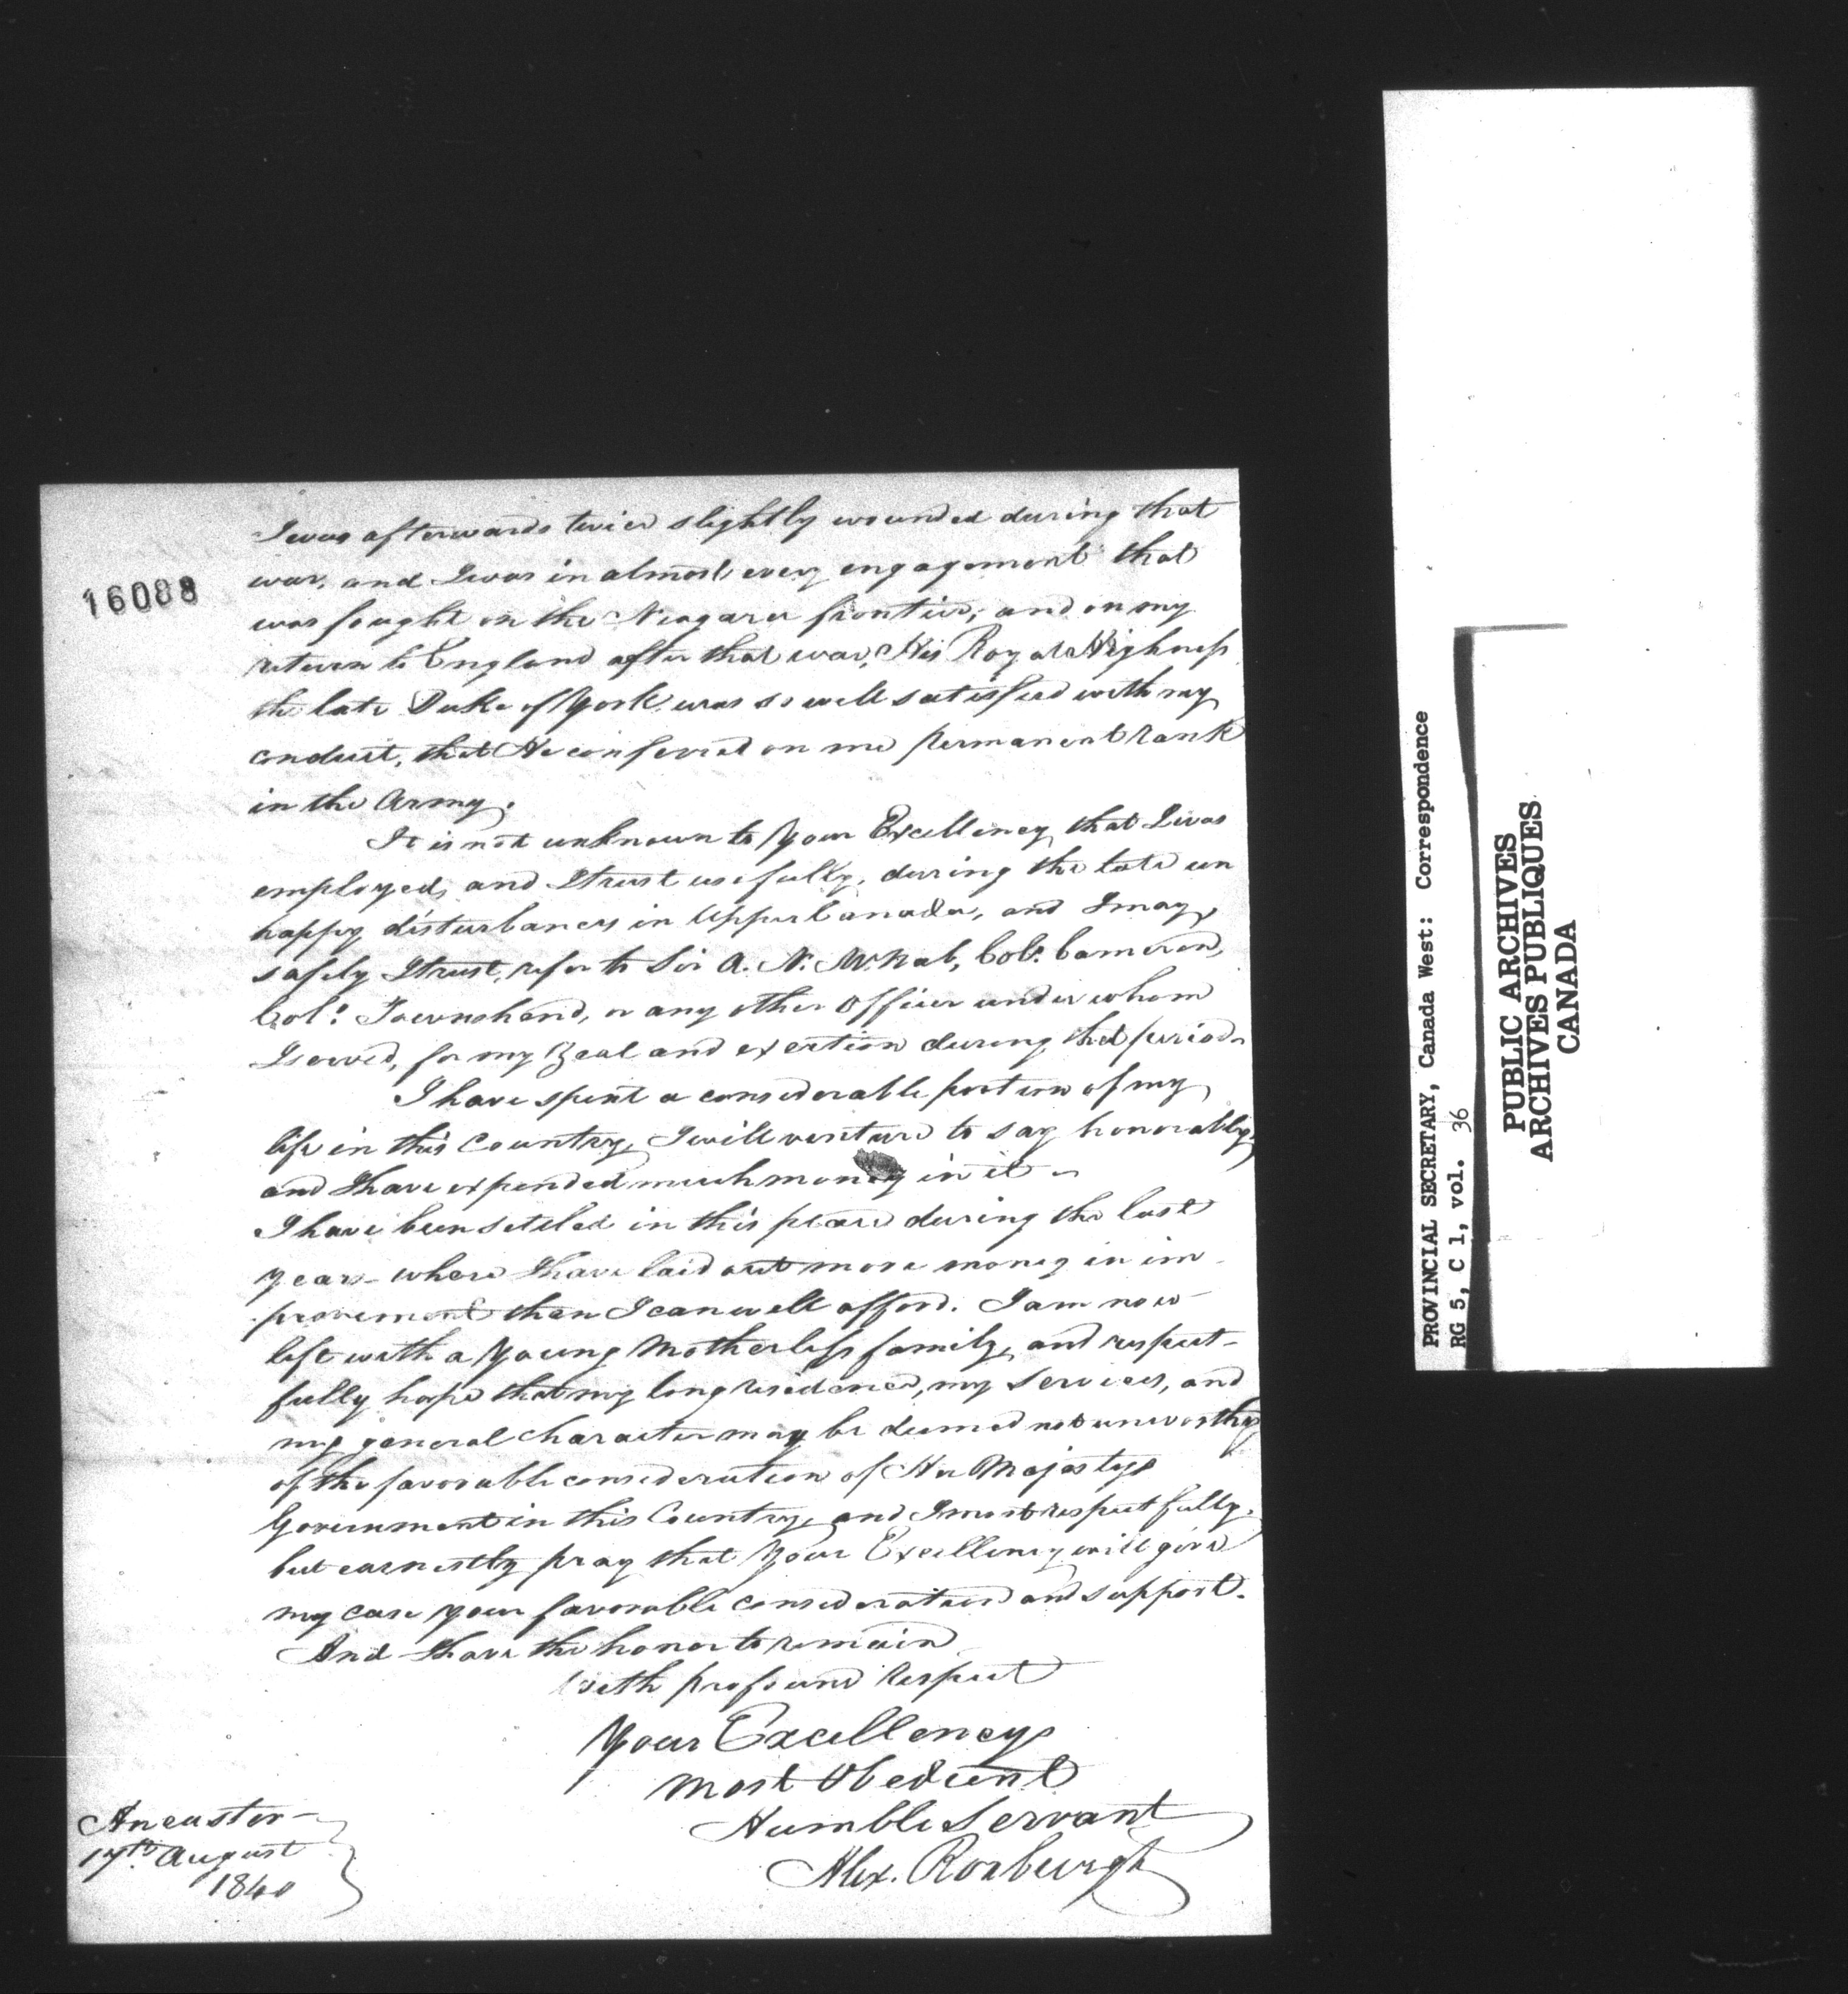 16088
I was afterwards twice slightly wounded during that
war, and I was in almost every engagement that
was fought on the Niagara frontier; and on my
return to England after that war, His Royal Highness
the late Duke of York was so well satisfied with my
conduct, that He conferred on me permanent rank
in the Army.
It is not unknown to Your Excellency that I was
employed, and I trust usefully, during the late un
happy disturbances in Upper Canada, and I may,
safely I trust, refer to Sir A. N. McNab, Col. Cameron,
Col: Townshend, or any other Officer under whom
I served, for my Zeal and exertion during that period.
I have spent a considerable portion of my
life in this Country, I will venture to say honorably,
and I have expended much money in it –
I have been settled in this place during the last
years – where I have laid out more money in im
provement than I can well afford. I am now
left with a Young Motherless family, and respect-
fully hope that my long residence, my Services, and
my general Character may be deemed not unworthy
of the favorable consideration of Her Majestys
Government in this Country, and I most respectfully,
but earnestly pray that Your Excellency will give
my case your favorable consideration and support.
And I have the honor to remain
With profound Respect
Your Excellencys
Most Obedient
Humble Servant
Alex. Roxburgh
Ancaster –
17th August
1840
PROVINCIAL SECRETARY, Canada West: Correspondence
RG 5, C 1, vol. 36
PUBLIC ARCHIVES
ARCHIVES PUBLIQUES
CANADA